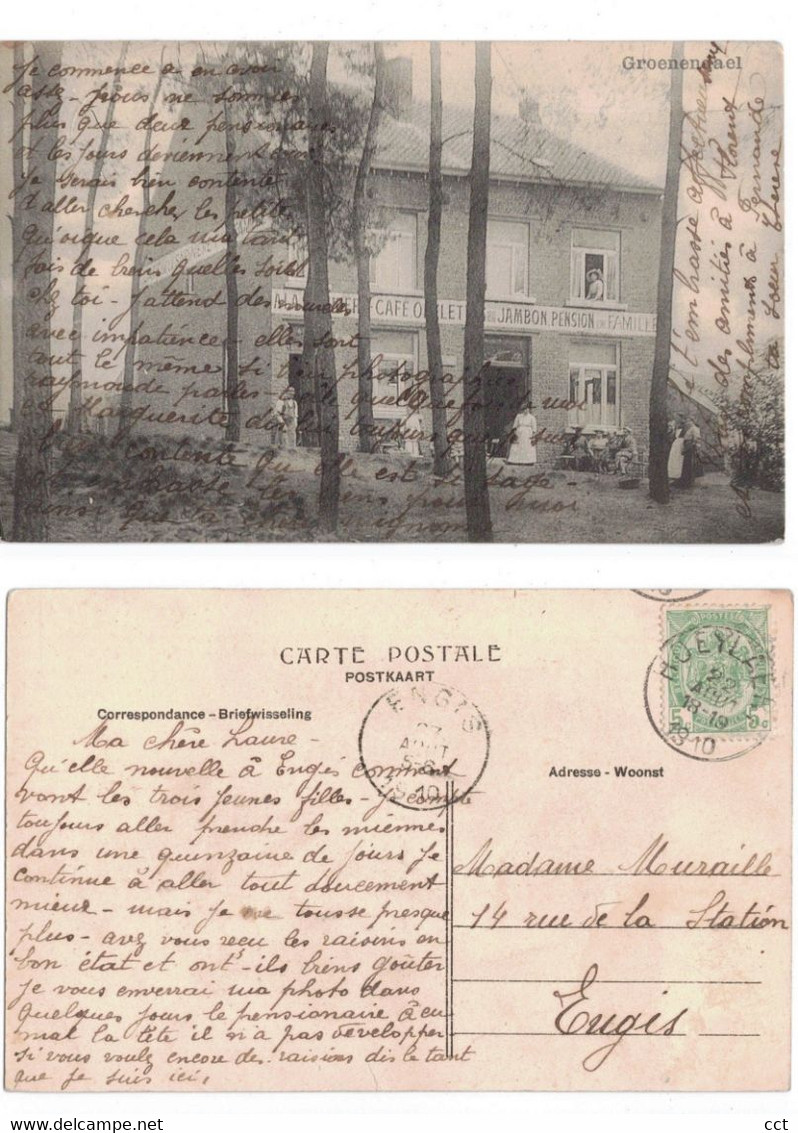 Groenendael
Je commence a en avoir
assez - nous ne sommes
plus que deux pensionaires
et les jours deviennent
Je serais bien contente
d'aller chercher les petites
qu'oique cela ma tant
fois de bien quelles soient
chez toi - J'attend des nouvelles
avec impatience elles sont
tout le même si bien photographiée
raymonde parles-t-elle quelquefois de moi
et Marguerite dis lui toujours que je suis
contente qu'elle est si sage -
embrasse les biens pour moi
ainsi que
t'embasse affectueusement
des amitiés à Florent
compliments à Fernande
ta soeur
CAFE OMELETTE JAMBON PENSION DE FAMILLE
CARTE POSTALE
POSTKAART
Correspondance - Briefwisseling
Adresse - Woonst
ENGIS
27
AOUT
5-6
10
POSTE
5 c
HOEYLAERT
22
AOUT
18-19
1910
Ma chère Laure -
Qu'elle nouvelle à Engis comment
vont les trois Jeunes filles - Je compte
toujours aller prendre les miennes
dans une quinzaine de jours Je
continue à aller tout doucement
mieux - mais Je ne tousse presque
plus - avez vous reçu les raisins en
bon état et ont-ils biens goûter
Je vous enverrai ma photo dans
quelques jours le pensionaire à eu
mal la tête il n'a pas développer
si vous voulez encore des raisins dis le tant
que Je suis ici,
Madame Muraille
14 rue de la Station
Engis
cct